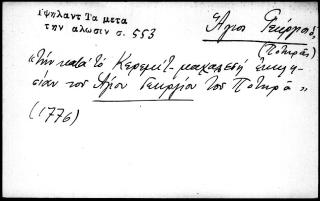 Ὑψηλαντ Τα μετα
την αλωσιν σ. 553
Ἅγιος Γεώργιος,
(Ποτηρᾶς)
«Τὴν κατὰ τὸ Κερεμὶτ-μαχαλεσὴ ἐκκλη-
σίαν τοῦ Ἁγίου Γεωργίου τοῦ Ποτηρᾶ»
(1776)